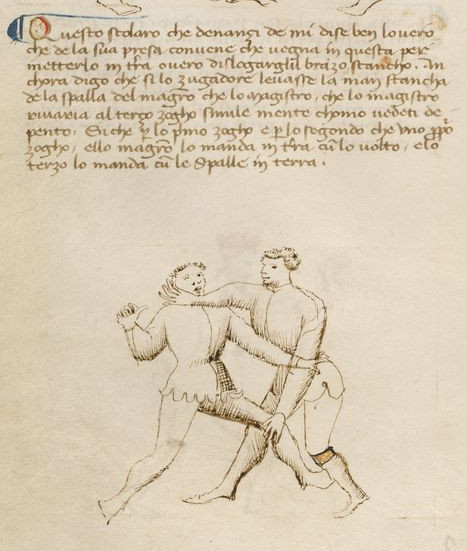 Questo scolaro che denançi de mi dise ben lo vero
che de la sua presa convene che vegna in questa per
metterlo in t'ra overo dislogargli'l brazo stancho. An
chora digo che si lo zugadore levasse la man stancha
de la spalla del magro che lo magistro, che lo magistro
rivaria al terço zogho simile mente chomo vedeti de
pento. Si che p lo p'mo zogho e p lo segondo che uno pp'o
zogho, ello magro lo manda in t'ra cu lo volto, e lo
terzo lo manda cu le spalle in terra.